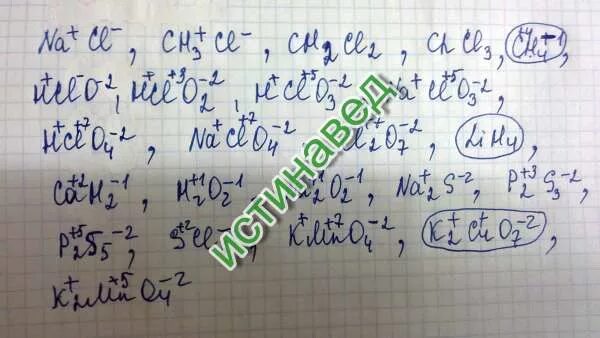 Na⁺Cl⁻, CH₃⁺Cl⁻, CH₂Cl₂, CHCl₃,
H⁺Cl⁺O⁻², H⁺Cl⁺³O₂⁻², H⁺Cl⁺⁵O₃⁻², Na⁺Cl⁺⁵O₃⁻²
H⁺Cl⁺⁷O₄⁻², Na⁺Cl⁺⁷O₄⁻², O₇⁻², LiH₄,
Ca⁺²H₂⁻¹, H₂⁺¹O₂⁻¹, O₂⁻¹, Na₂⁺S⁻², P₂⁺³S₃⁻²,
P₂⁺⁵S₅⁻², S⁺²Cl⁻, K⁺Mn⁺⁷O₄⁻², O₇⁻²,
K₂⁺Mn⁺⁵O₄⁻²
ИСТИНАВЕД